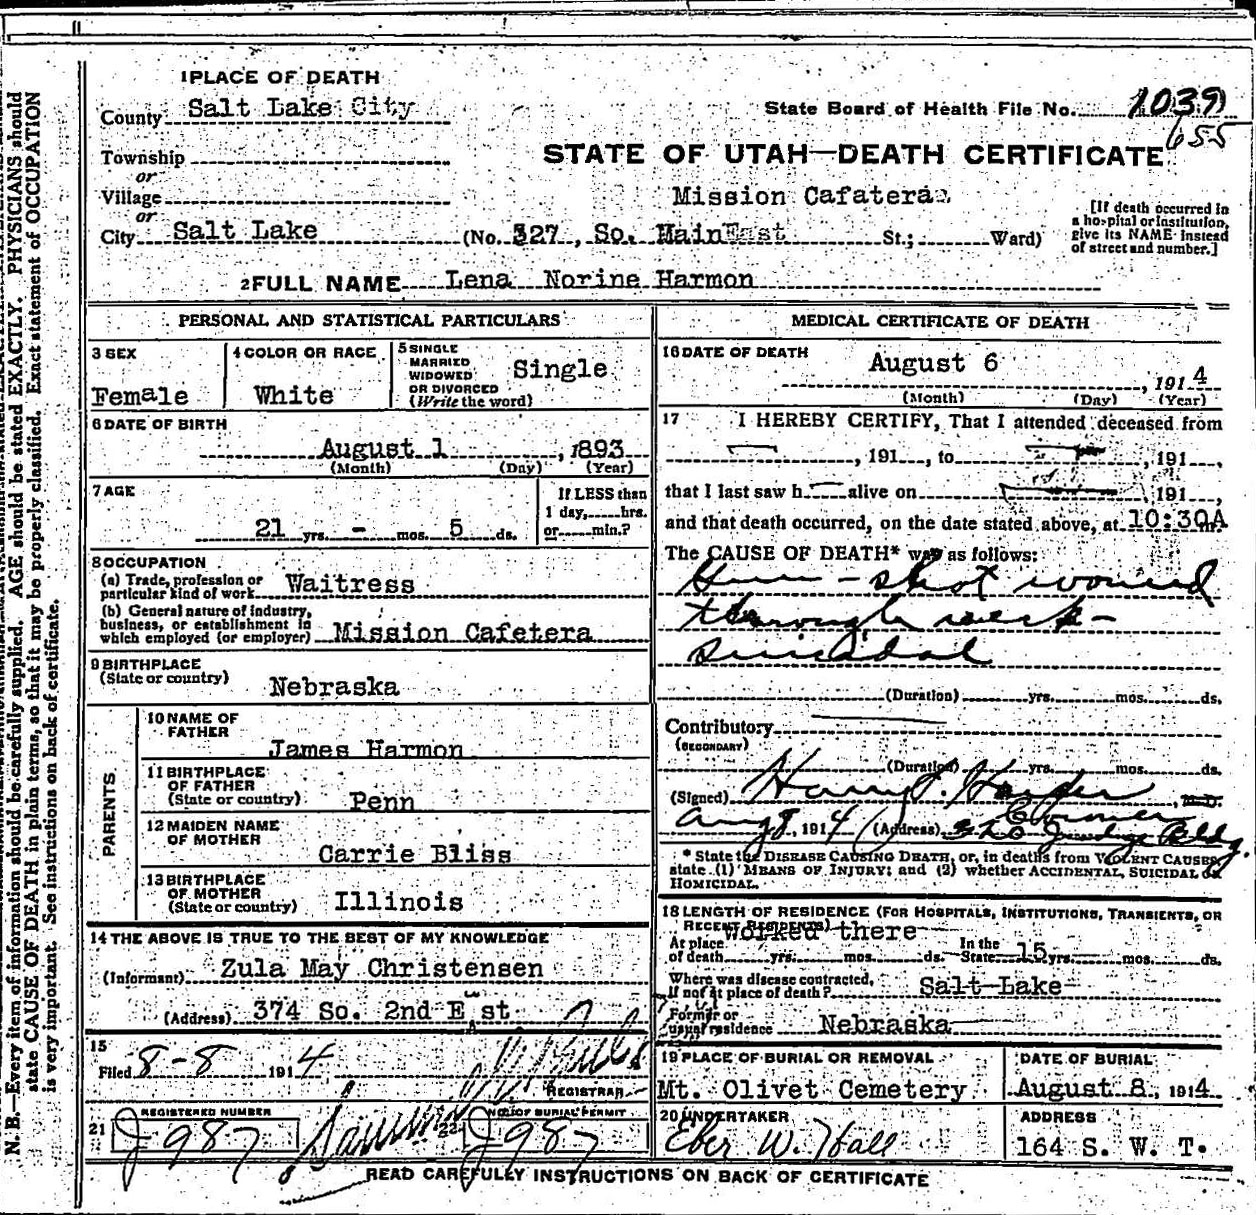 1 PLACE OF DEATH
County Salt Lake City
State Board of Health File No. 1039
655
Township
or
STATE OF UTAH—DEATH CERTIFICATE
Village
or
Mission Cafatera
[If death occurred in a hospital or institution, give its NAME instead of street and number.]
City Salt Lake (No. 327, So. Main East St.; Ward)
2 FULL NAME Lena Norine Harmon
PERSONAL AND STATISTICAL PARTICULARS
3 SEX Female
4 COLOR OR RACE White
5 SINGLE MARRIED WIDOWED OR DIVORCED (Write the word) Single
6 DATE OF BIRTH
August 1, 1893
(Month) (Day) (Year)
7 AGE
21 yrs. - mos. 5 ds.
If LESS than 1 day, hrs. or min.?
8 OCCUPATION
(a) Trade, profession or particular kind of work Waitress
(b) General nature of industry, business, or establishment in which employed (or employer) Mission Cafetera
9 BIRTHPLACE
(State or country) Nebraska
PARENTS
10 NAME OF FATHER James Harmon
11 BIRTHPLACE OF FATHER (State or country) Penn
12 MAIDEN NAME OF MOTHER Carrie Bliss
13 BIRTHPLACE OF MOTHER (State or country) Illinois
14 THE ABOVE IS TRUE TO THE BEST OF MY KNOWLEDGE
(Informant) Zula May Christensen
(Address) 374 So. 2nd East
15
Filed 8-8 1914
REGISTRAR
21 REGISTERED NUMBER J987
22 NO. OF BURIAL PERMIT J987
MEDICAL CERTIFICATE OF DEATH
16 DATE OF DEATH
August 6, 1914
(Month) (Day) (Year)
17 I HEREBY CERTIFY, That I attended deceased from
, 191 , to , 191 ,
that I last saw h alive on , 191 ,
and that death occurred, on the date stated above, at 10:30A m.
The CAUSE OF DEATH* was as follows:
Gun-shot wound
through neck-
suicidal
(Duration) yrs. mos. ds.
Contributory
(SECONDARY)
(Duration) yrs. mos. ds.
(Signed) Harry S. Harper, M.D.
Coroner
Aug 8, 1914 (Address) 320 Judge Bldg.
* State the DISEASE CAUSING DEATH, or, in deaths from VIOLENT CAUSES,
state (1) MEANS OF INJURY; and (2) whether ACCIDENTAL, SUICIDAL or
HOMICIDAL.
18 LENGTH OF RESIDENCE (FOR HOSPITALS, INSTITUTIONS, TRANSIENTS, OR
RECENT RESIDENTS) worked there
At place of death yrs. mos. ds. In the State 15 yrs. mos. ds.
Where was disease contracted, If not at place of death? Salt Lake
Former or usual residence Nebraska
19 PLACE OF BURIAL OR REMOVAL
Mt. Olivet Cemetery
DATE OF BURIAL
August 8, 1914
20 UNDERTAKER
Eber W. Hall
ADDRESS
164 S. W. T.
READ CAREFULLY INSTRUCTIONS ON BACK OF CERTIFICATE
N. B.—Every item of information should be carefully supplied. AGE should be stated EXACTLY. PHYSICIANS should
state CAUSE OF DEATH in plain terms, so that it may be properly classified. Exact statement of OCCUPATION
is very important. See instructions on back of certificate.